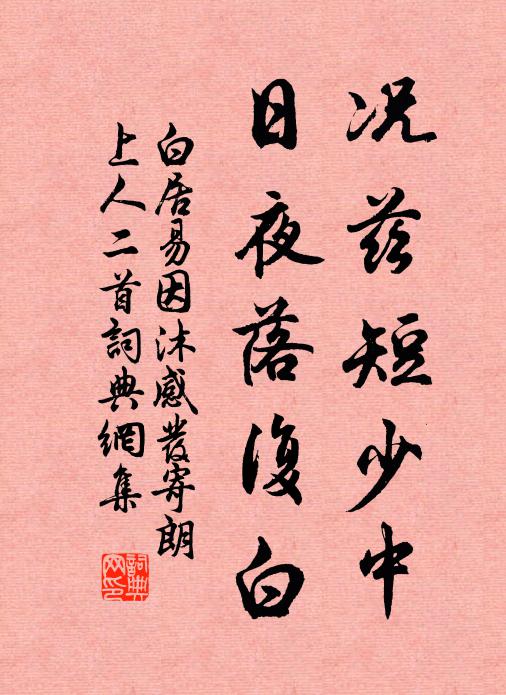 况茲短少中
日夜落復白
白居易因沐感發寄朗
上人二首詞典網集
詞典網印